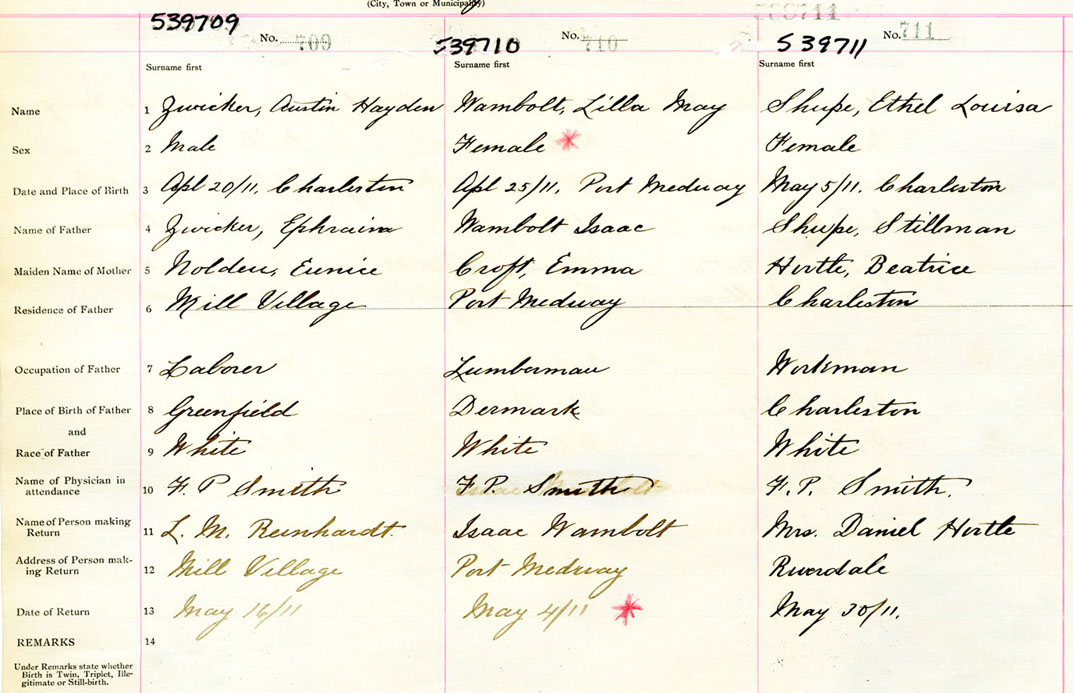 (City, Town or Municipality)
539709 No. 709 539710 No. 710 539711 No. 711
Surname first Surname first Surname first
Name 1 Zwicker, Austin Hayden Wambolt, Lilla May Shupe, Ethel Louisa
Sex 2 Male Female * Female
Date and Place of Birth 3 Apl 20/11. Charleston Apl 25/11. Port Medway May 5/11. Charleston
Name of Father 4 Zwicker, Ephraim Wambolt Isaac Shupe, Stillman
Maiden Name of Mother 5 Nolden, Eunice Croft, Emma Hirtle, Beatrice
Residence of Father 6 Mill Village Port Medway Charleston
Occupation of Father 7 Laborer Lumberman Workman
Place of Birth of Father 8 Greenfield Denmark Charleston
and
Race of Father 9 White White White
Name of Physician in
attendance 10 F. P Smith F. P. Smith F. P. Smith.
Name of Person making
Return 11 L. M. Reinhardt. Isaac Wambolt Mrs. Daniel Hirtle
Address of Person mak-
ing Return 12 Mill Village Port Medway Riverdale
Date of Return 13 May 16/11 May 4/11 * May 30/11.
REMARKS 14
Under Remarks state whether
Birth is Twin, Triplet, Ille-
gitimate or Still-birth.